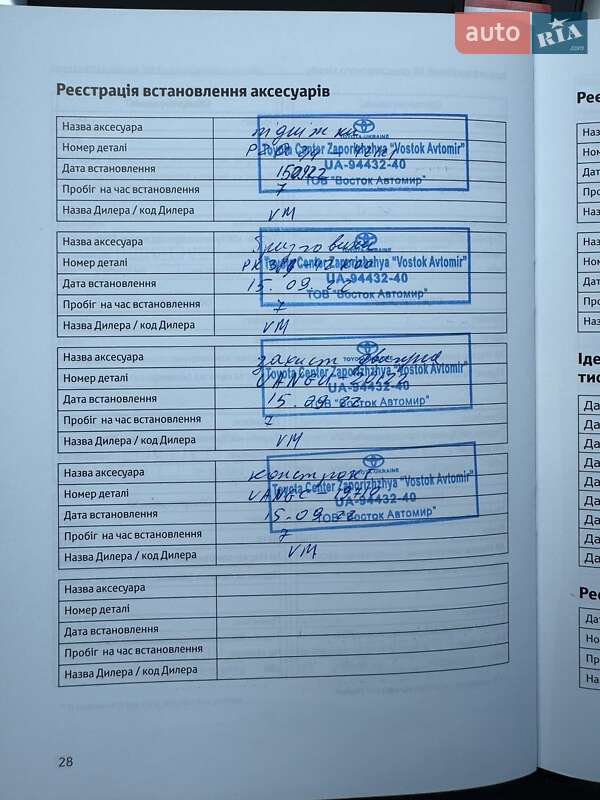 auto RIA.com
Реєстрація встановлення аксесуарів
Назва аксесуара підніжки
Номер деталі
Дата встановлення 15.09.22
Пробіг на час встановлення 7
Назва Дилера / код Дилера VM
TOYOTA-UKRAINE
Toyota Center Zaporizhzhya "Vostok Avtomir"
UA-94432-40
ТОВ "Восток Автомир"
Назва аксесуара бризговики
Номер деталі
Дата встановлення 15.09.22
Пробіг на час встановлення 7
Назва Дилера / код Дилера VM
Toyota Center Zaporizhzhya "Vostok Avtomir"
UA-94432-40
ТОВ "Восток Автомир"
Назва аксесуара захист двигуна
Номер деталі
Дата встановлення 15.09.22
Пробіг на час встановлення 7
Назва Дилера / код Дилера VM
Toyota Center Zaporizhzhya "Vostok Avtomir"
UA-94432-40
ТОВ "Восток Автомир"
Назва аксесуара
Номер деталі
Дата встановлення 15.09.22
Пробіг на час встановлення 7
Назва Дилера / код Дилера VM
TOYOTA-UKRAINE
Toyota Center Zaporizhzhya "Vostok Avtomir"
UA-94432-40
ТОВ "Восток Автомир"
Назва аксесуара
Номер деталі
Дата встановлення
Пробіг на час встановлення
Назва Дилера / код Дилера
28